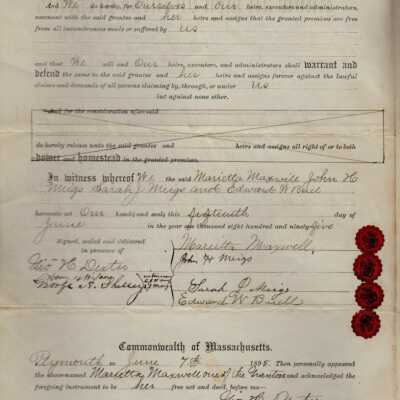 And We do hereby, for Ourselves and Our heirs, executors and administrators,
covenant with the said grantee and her heirs and assigns that the granted premises are free
from all incumbrances made or suffered by us
and that We will and Our heirs, executors, and administrators shall warrant and
defend the same to the said grantee and her heirs and assigns forever against the lawful
claims and demands of all persons claiming by, through, or under us
but against none other.
And for the consideration aforesaid
do hereby release unto the said grantee and heirs and assigns all right of or to both
dower and homestead in the granted premises.
In witness whereof We the said Marietta Maxwell John H
Meigs Sarah J Meigs and Edward W Bell
hereunto set Our hands and seals this day of
June in the year one thousand eight hundred and ninety five
Signed, sealed and delivered
in presence of
Marietta Maxwell
Geo H Dexter
John H Meigs
Sarah J Meigs
Edward W Bell
Commonwealth of Massachusetts.
Plymouth ss June 7th 1895. Then personally appeared
the above-named Marietta Maxwell one of the Grantors and acknowledged the
foregoing instrument to be her free act and deed, before me—
Geo H Dexter